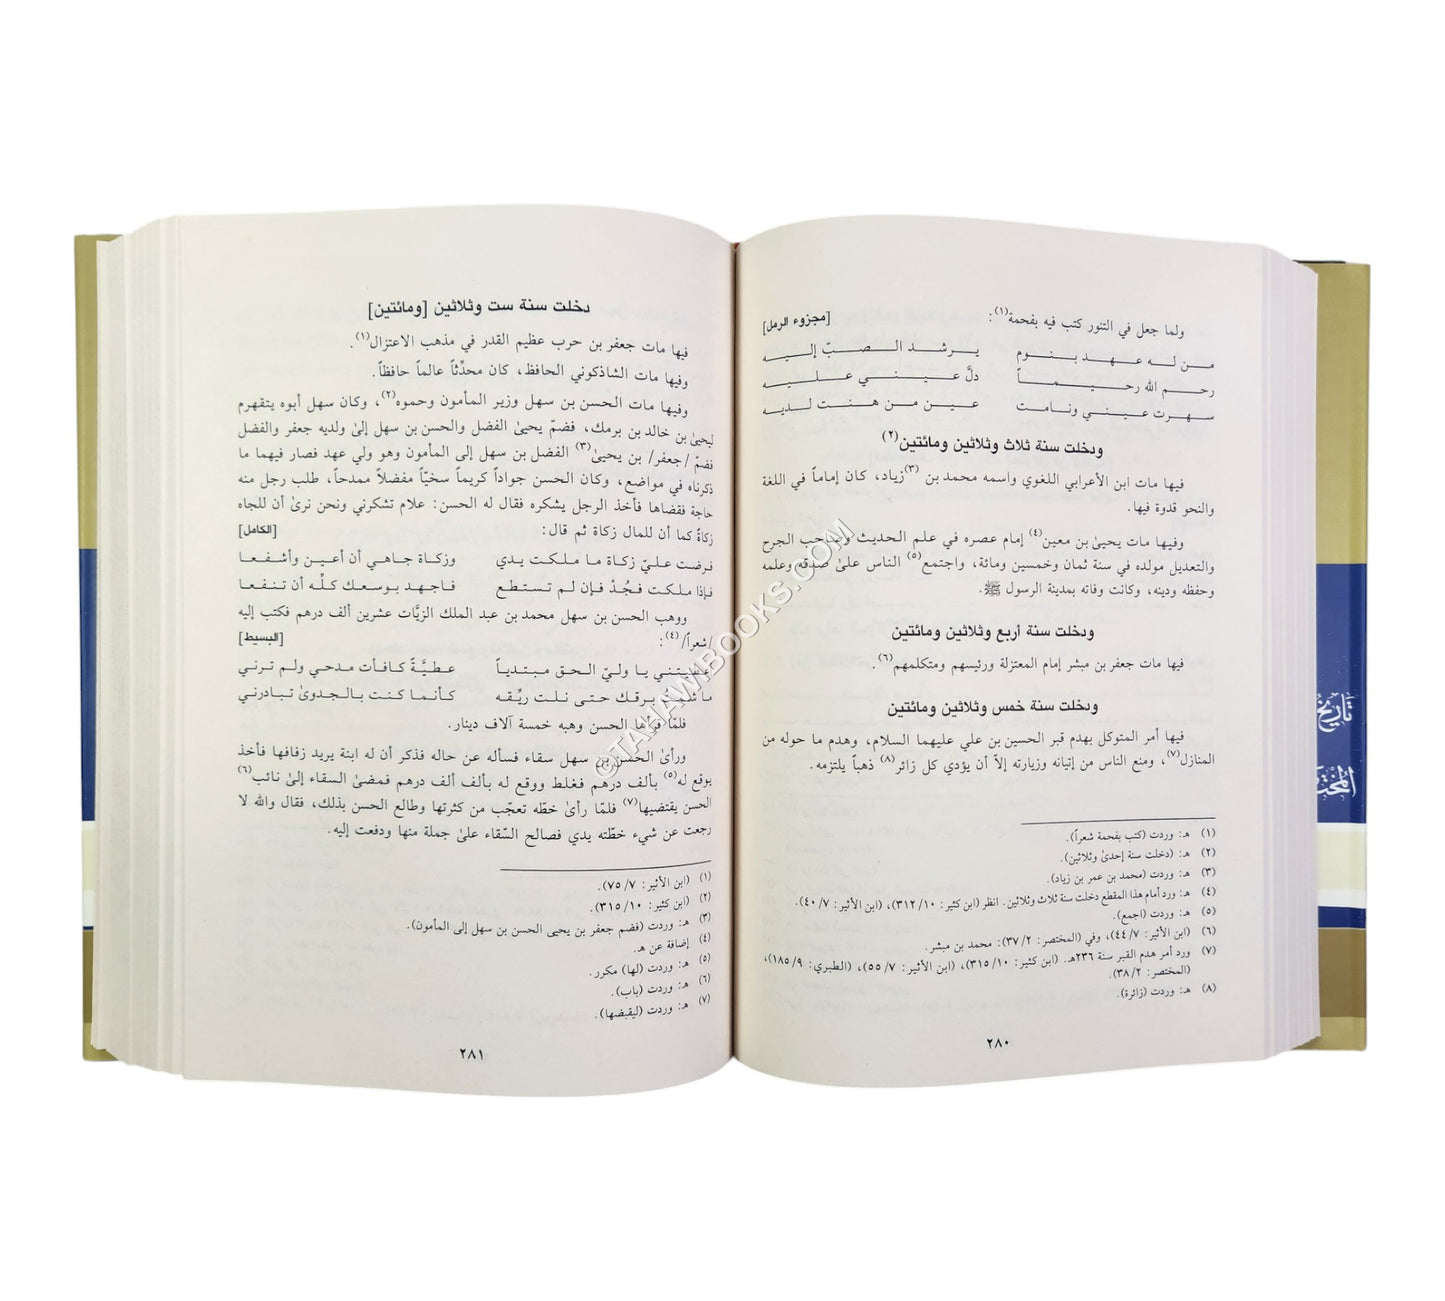 ولما جعل في التنور كتب فيه بفحمة(١): [مجزوء الرمل]
من له عهد بنوم يرشد الصبّ إليه
رحم الله رحيماً دلَّ عيني عليه
سهرت عيني ونامت عين من هنت لديه
ودخلت سنة ثلاث وثلاثين ومائتين(٢)
فيها مات ابن الأعرابي اللغوي واسمه محمد بن(٣) زياد، كان إماماً في اللغة
والنحو قدوة فيها.
وفيها مات يحيىٰ بن معين(٤) إمام عصره في علم الحديث وصاحب الجرح
والتعديل مولده في سنة ثمان وخمسين ومائة، واجتمع(٥) الناس علىٰ صدقه وعلمه
وحفظه ودينه، وكانت وفاته بمدينة الرسول ﷺ.
ودخلت سنة أربع وثلاثين ومائتين
فيها مات جعفر بن مبشر إمام المعتزلة ورئيسهم ومتكلمهم(٦).
ودخلت سنة خمس وثلاثين ومائتين
فيها أمر المتوكل بهدم قبر الحسين بن علي عليهما السلام، وهدم ما حوله من
المنازل(٧)، ومنع الناس من إتيانه وزيارته إلاّ أن يؤدي كل زائر(٨) ذهباً يلتزمه.
(١) هـ: وردت (كتب بفحمة شعراً).
(٢) هـ: (دخلت سنة إحدىٰ وثلاثين).
(٣) هـ: وردت (محمد بن عمر بن زياد).
(٤) هـ: ورد أمام هذا المقطع دخلت سنة ثلاث وثلاثين. انظر (ابن كثير: ٣١٢/١٠)، (ابن الأثير: ٤٠/٧).
(٥) هـ: وردت (اجمع).
(٦) (ابن الأثير: ٤٤/٧)، وفي (المختصر: ٣٧/٢): محمد بن مبشر.
(٧) ورد أمر هدم القبر سنة ٢٣٦هـ. (ابن كثير: ٣١٥/١٠)، (ابن الأثير: ٥٥/٧)، (الطبري: ١٨٥/٩)،
(المختصر: ٣٨/٢).
(٨) هـ: وردت (زائرة).
٢٨٠
دخلت سنة ست وثلاثين [ومائتين]
فيها مات جعفر بن حرب عظيم القدر في مذهب الاعتزال(١).
وفيها مات الشاذكوني الحافظ، كان محدِّثاً عالماً حافظاً.
وفيها مات الحسن بن سهل وزير المأمون وحموه(٢)، وكان سهل أبوه يتقهرم
ليحيىٰ بن خالد بن برمك، فضمّ يحيىٰ الفضل والحسن بن سهل إلىٰ ولديه جعفر والفضل
فضمّ /جعفر/ بن يحيىٰ(٣) الفضل بن سهل إلى المأمون وهو ولي عهد فصار فيهما ما
ذكرناه في مواضع، وكان الحسن جواداً كريماً سخيّاً مفضلاً ممدحاً، طلب رجل منه
حاجة فقضاها فأخذ الرجل يشكره فقال له الحسن: علام تشكرني ونحن نرىٰ أن للجاه
زكاةً كما أن للمال زكاة ثم قال: [الكامل]
فرضت عليّ زكاة ما ملكت يدي وزكاة جاهي أن أعين وأشفعا
فإذا ملكت فجُدْ فإن لم تستطع فاجهد بوسعك كلّه أن تنفعا
ووهب الحسن بن سهل محمد بن عبد الملك الزيَّات عشرين ألف درهم فكتب إليه
/شعراً/(٤): [البسيط]
أعطيتني يا وليّ الحق مبتدياً عطيَّةً كافأت مدحي ولم ترني
ما شمت برقك حتى نلت ريِّقه كأنما كنت بالجدوىٰ تبادرني
فلمّا قرأها الحسن وهبه خمسة آلاف دينار.
ورأىٰ الحسن بن سهل سقاء فسأله عن حاله فذكر أن له ابنة يريد زفافها فأخذ
يوقع له(٥) بألف درهم فغلط ووقع له بألف ألف درهم فمضىٰ السقاء إلىٰ نائب(٦)
الحسن يقتضيها(٧) فلمّا رأىٰ خطّه تعجّب من كثرتها وطالع الحسن بذلك، فقال والله لا
رجعت عن شيء خطّته يدي فصالح السّقاء علىٰ جملة منها ودفعت إليه.
(١) (ابن الأثير: ٧٥/٧).
(٢) (ابن كثير: ٣١٥/١٠).
(٣) هـ: وردت (فضم جعفر بن يحيى الحسن بن سهل إلى المأمون).
(٤) إضافة عن هـ.
(٥) هـ: وردت (لها) مكرر.
(٦) هـ: وردت (باب).
(٧) هـ: وردت (ليقبضها).
٢٨١
تاريخ
©TAHAWIBOOKS.COM